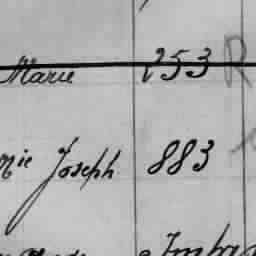 Marie 253 R
Mie Joseph 883